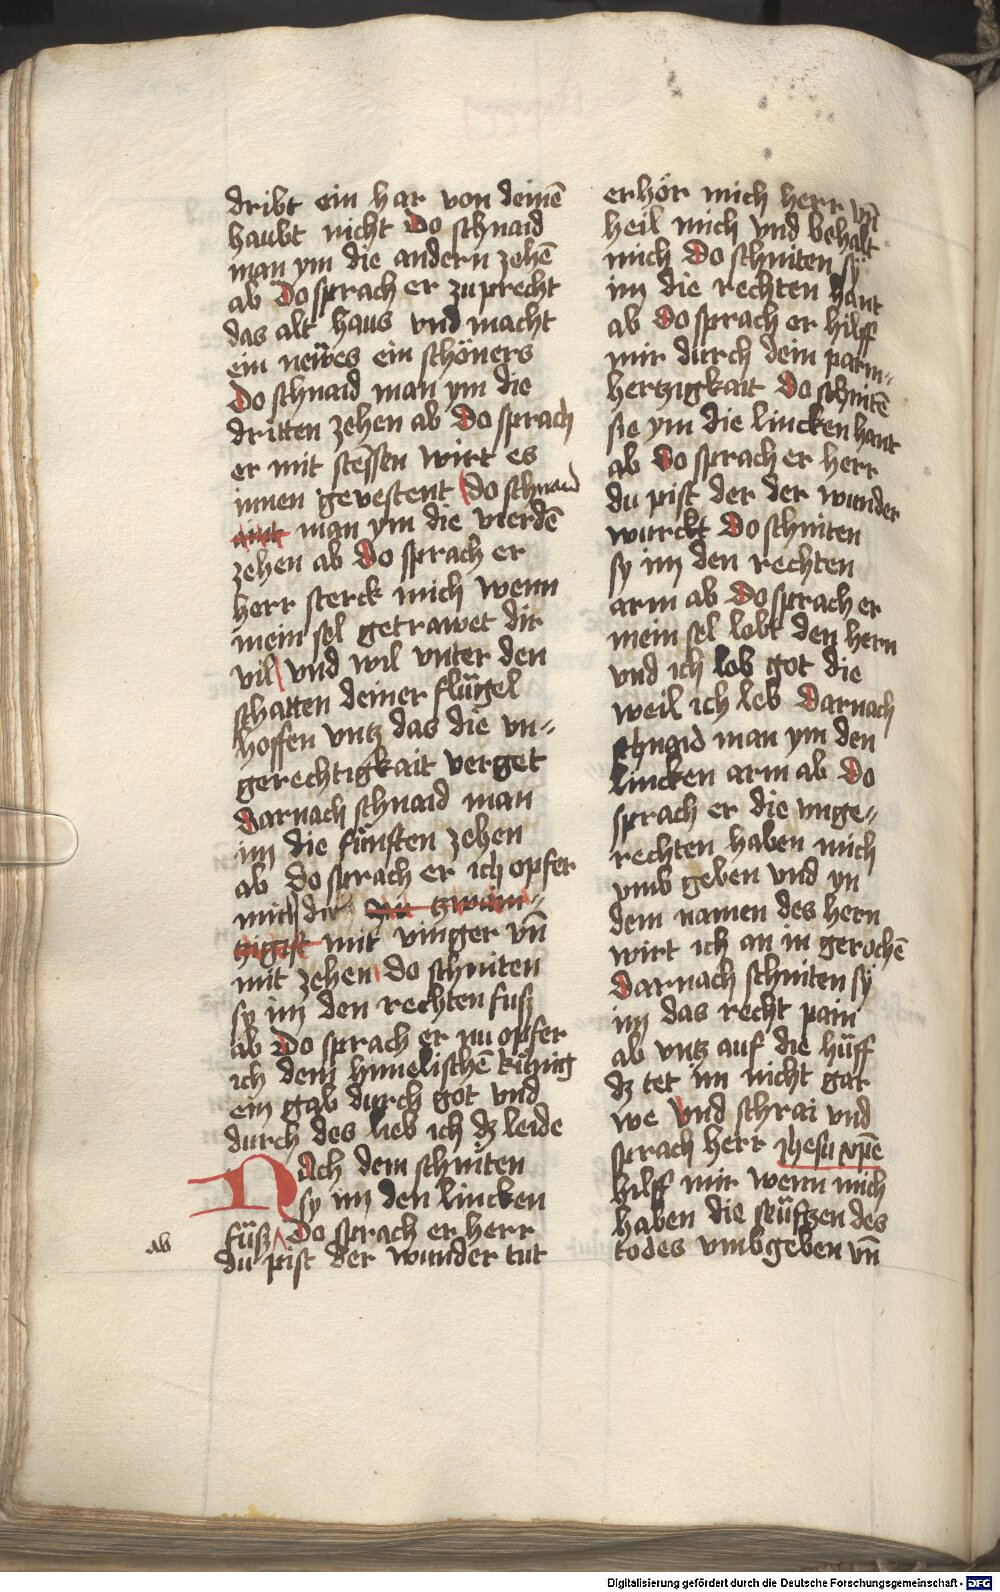 dribt ein har von deinē
haubt nicht Do schnaid
man ym die andern zehē
ab Do sprach er zuprecht
das alt haus vnd macht
ein newes ein schöners
Do schnaid man ym die
dritten zehen ab Do sprach
er mit stessen wirt es
innen gevestent do schnaid
man ym die vierdē
zehen ab Do sprach er
herr sterck mich wenn
mein sel getrawet dir
vil vnd wil vnter den
schatten deiner flügel
hoffen vntz das die vn„
gerechtigkait verget
Darnach schnaid man
im die fünften zehen
ab do sprach er ich opfer
mich dir
mit vinger vn̄
mit zehen do schniten
sy im den rechten fusz
ab Do sprach er nu opfer
ich dem himelischē küng
ein gab durch got vnd
durch des lieb ich dz leide
Nach dem schniten
sy im den lincken
füsz ab Do sprach er herr
du pist der wunder tut
erhör mich herr vn̄
heil mich vnd behalt
mich Do schniten sy
im die rechten hant
ab Do sprach er hilff
mir durch dein parm„
hertzigkait Do schnitē
sie ym die lincken hant
ab Do sprach er herr
du pist der der wunder
würckt Do schniten
sy im den rechten
arm ab Do sprach er
mein sel lobt den hern
vnd ich lob got die
weil ich leb Darnach
schnaid man ym den
lincken arm ab Do
sprach er die vnge„
rechten haben mich
vmb geben vnd yn
dem namen des hern
wirt ich an in gerochē
Darnach schniten sy
im das recht pain
ab vntz auf die hüff
dz tet im nicht gar
we Vnd schrai vnd
sprach herr jhesu xp̄e
hilff mir wenn mich
haben die seüftzen des
todes vmbgeben vn̄
Digitalisierung gefördert durch die Deutsche Forschungsgemeinschaft - DFG